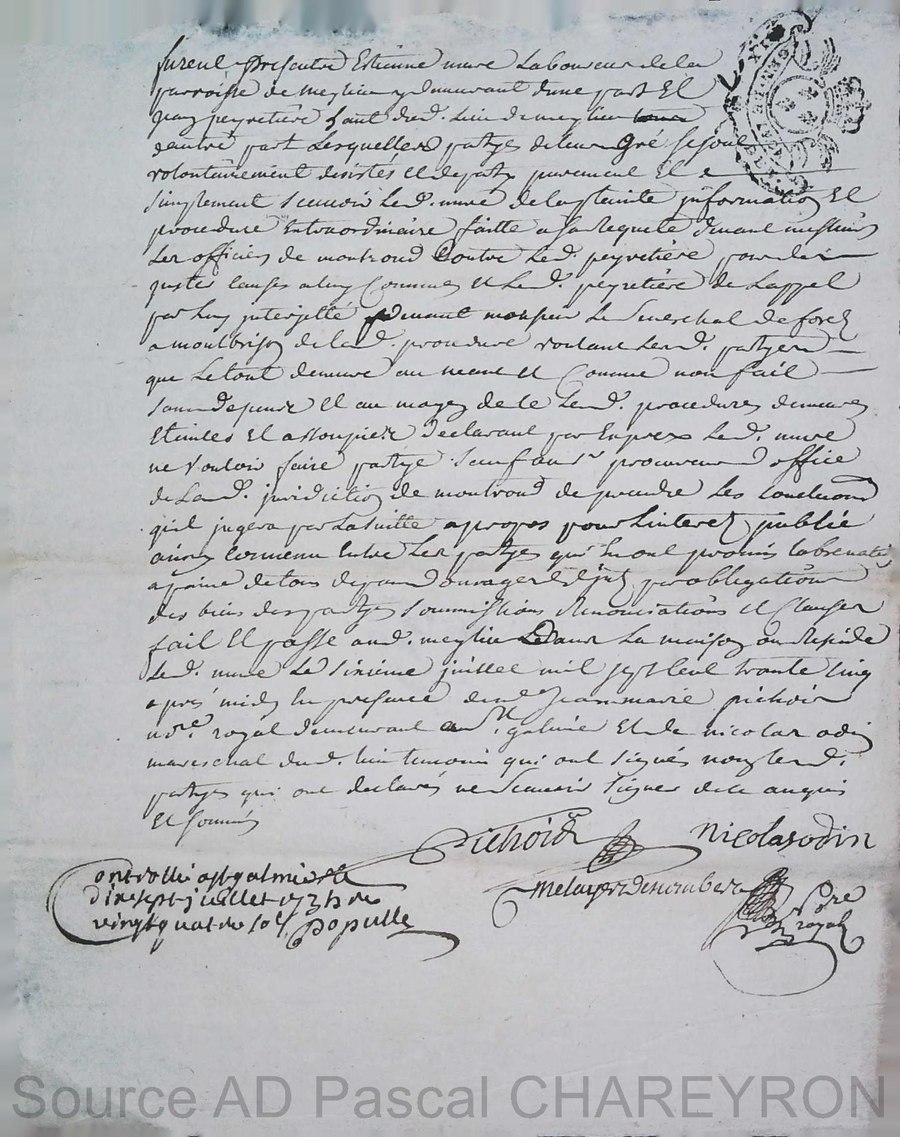 furent presents Estienne mure Laboureur de la
parroisse de meylieu y demeurant d'une part Et
Jean peyretière haut dud. Lieu de meylieu
d'autre part Lesquelles partyes de leur Gré se sont
volontairement desistés et departy purement Et
simplement scavoir Led. mure de la plainte information Et
procedure Extraordinaire faitte a sa Requete devant messieurs
Les officiers de montrond Contre Led. peyretière pour les
justes causes a luy Connues et Led. peyretière de Lappel
par Luy interjetté devant monsieur Le Senechal de forez
a montbrison de lad. procedure voulant Lesd. partyes
que Le tout demeure au neant et Comme non fait
sans depens Et au moyen de ce Lesd. procedures demeurent
Eteintes Et assoupies declarant par Exprex Led. mure
ne vouloir faire partye sauf au sr procureur d'office
de Lad. juridiction de montrond de prendre Les conclusions
qu'il jugera par La suitte a propos pour L'interet publicq
ainsy convenu Entre Les partyes qui L'ont promis observer
a peine de tous depans domages Et Int. par obligations
des biens desd. partyes soummissions Renonciations et Clauses
fait Et passé aud. meylieu dans La maison ou Reside
Led. mure Le sixieme juillet mil sept Cent trante cinq
apres midy En presence de me Jean marie pichoin
nore. royal demeurant a St. galmier Et de nicolas odin
mareschal dud. lieu temoins qui ont signés non Lesd.
partyes qui ont declarés ne scavoir signer de ce enquis
Et sommés
Pichoin
Nicolas odin
Controllé a st galmier le
dixsept juillet 1735 reçu
vingt quatre sols Populle
nore
royal
GEN DE
Source AD Pascal CHAREYRON